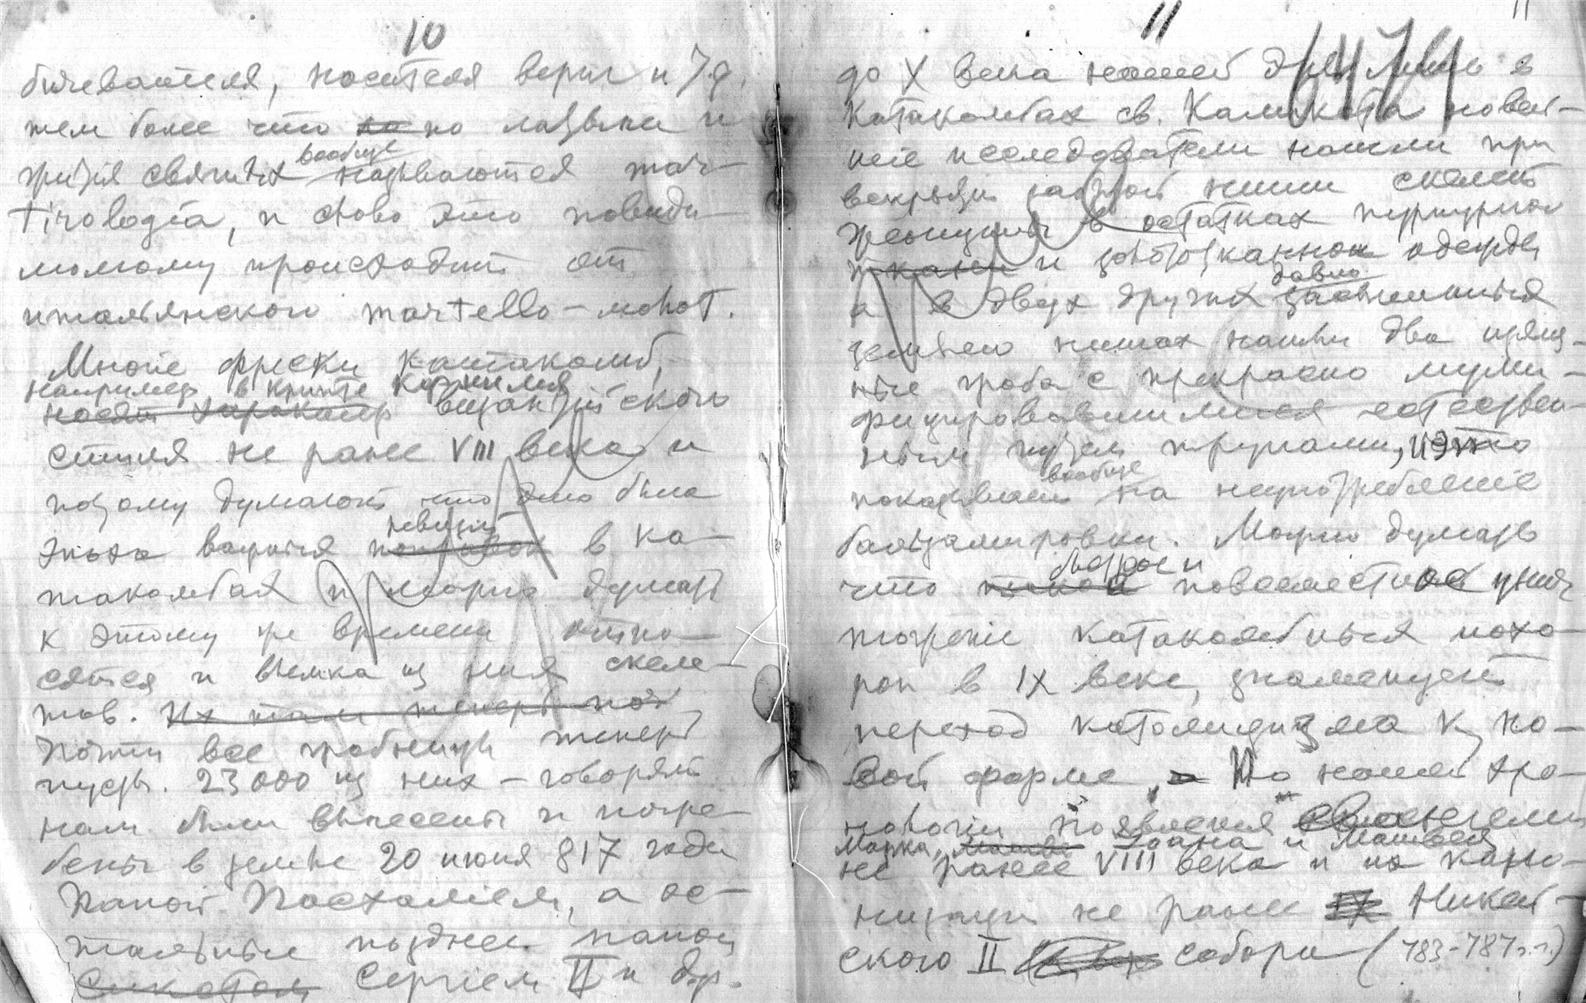 10
бичевателя, носителя вериг и т.д.
тем более что по латыни и
жития святых вообще называются mar-
tirologia, и слово это повиди-
мому происходит от
итальянского martello – молот.
Многие фрески катакомб,
например в крипте Корнилия
византийского
стиля не ранее VIII века и
потому думают что это была
эпоха взятия ревизии в ка-
такомбах и можно думать
к этому же времени отно-
сятся и выемка из них скеле-
тов. Их там теперь нет
Почти все гробницы теперь
пусты. 23000 из них – говорят
нам были вынесены и погре-
бены в земле 20 июня 817 года
Папой Пасхалием, а ос-
тальные позднее папой
Сергием II и др.
11
11
до X века нашей эры. Лишь в
Катакомбах св. Каликста новей-
шие исследователи нашли при
вскрытии занятой ниши скелет
женщины в остатках пурпурной
ткани и золототканной одежды
а в двух других давно засыпанных
землею нишах нашли два
гроба с прекрасно муми-
фицировавшимися естествен-
ным путем трупами, и это
показывает вообще на неупотребление
бальзамировки. Можно думать
что быстрое и повсеместное уничтожение катакомбных похо-
рон в IX веке, знаменует
переход католицизма к но-
вой форме, По нашей хро-
нологии появления евангелий
Марка, Иоана и Матвея
не ранее VIII века и их кано-
низации не ранее Никей-
ского II собора (783–787 г.г.)